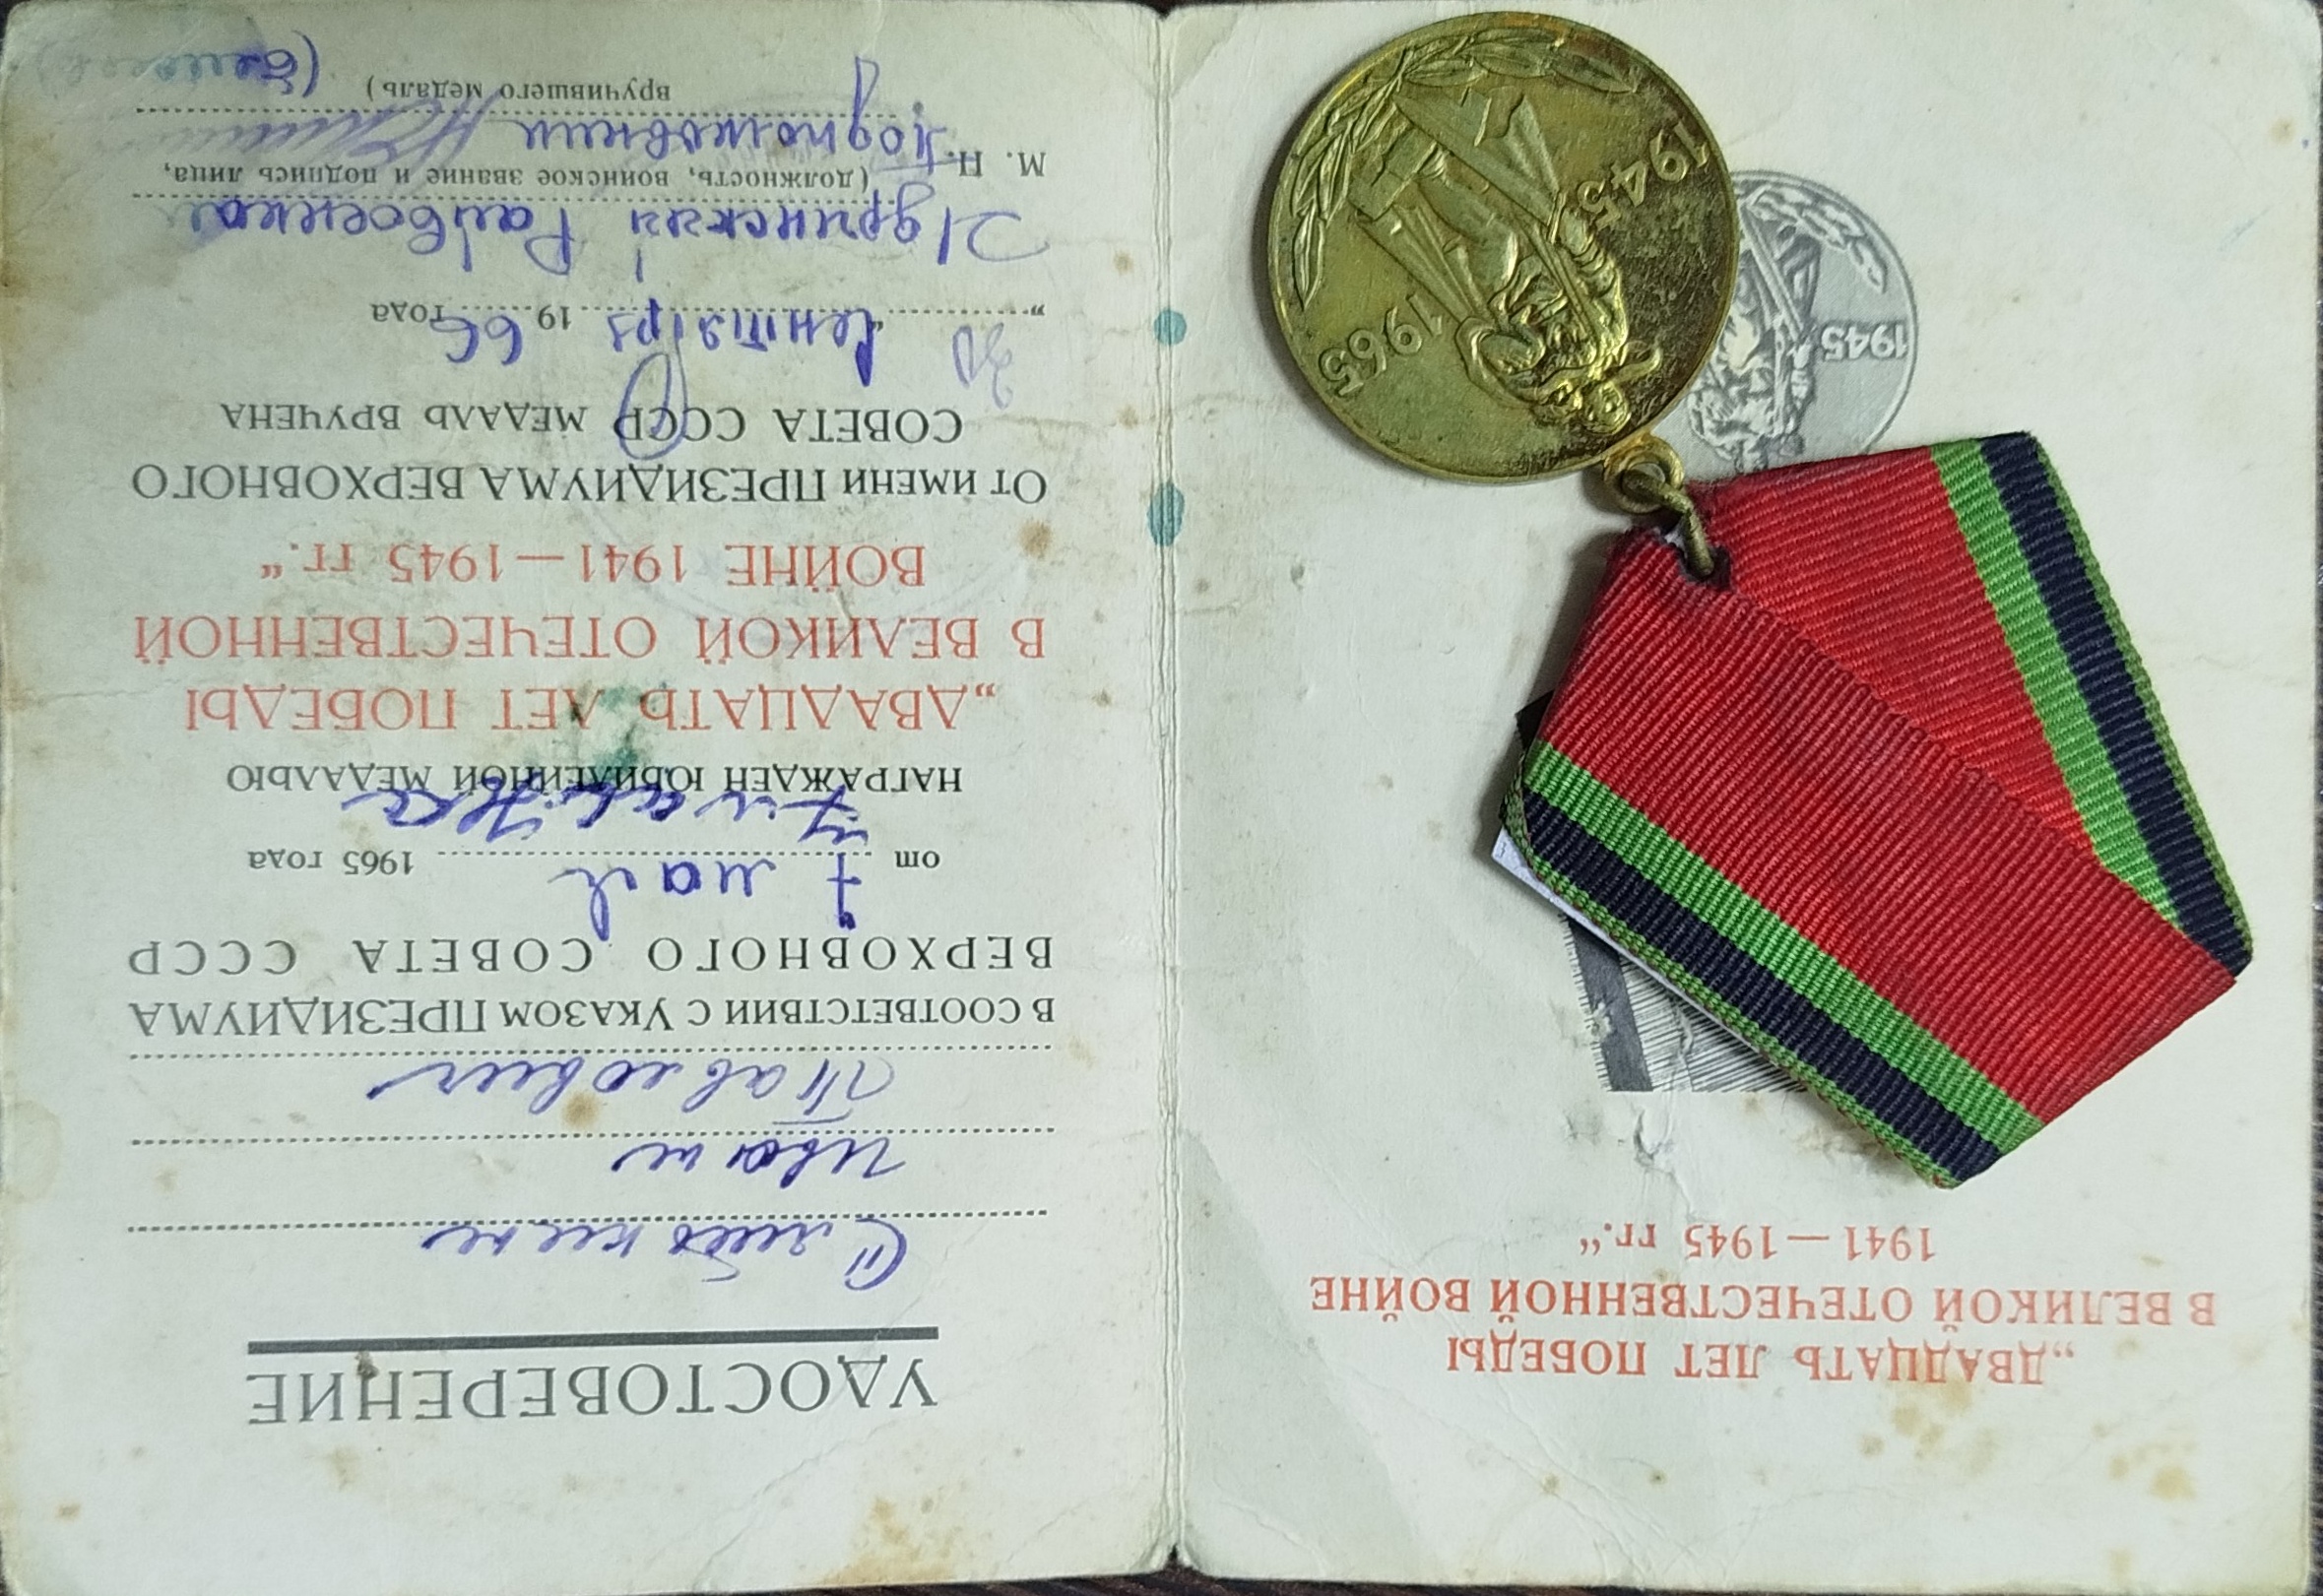 „ДВАДЦАТЬ ЛЕТ ПОБЕДЫ
В ВЕЛИКОЙ ОТЕЧЕСТВЕННОЙ ВОЙНЕ
1941—1945 гг.“
1945
1945
1965
УДОСТОВЕРЕНИЕ
Иван
Павлович
В СООТВЕТСТВИИ С УКАЗОМ ПРЕЗИДИУМА
ВЕРХОВНОГО СОВЕТА СССР
от 7 мая 1965 года
НАГРАЖДЕН ЮБИЛЕЙНОЙ МЕДАЛЬЮ
„ДВАДЦАТЬ ЛЕТ ПОБЕДЫ
В ВЕЛИКОЙ ОТЕЧЕСТВЕННОЙ
ВОЙНЕ 1941—1945 гг.“
ОТ ИМЕНИ ПРЕЗИДИУМА ВЕРХОВНОГО
СОВЕТА СССР МЕДАЛЬ ВРУЧЕНА
„30“ Сентября 1966 года
Идринский Райвоенком
(должность, воинское звание и подпись лица,
М. П. Подполковник
вручившего медаль)